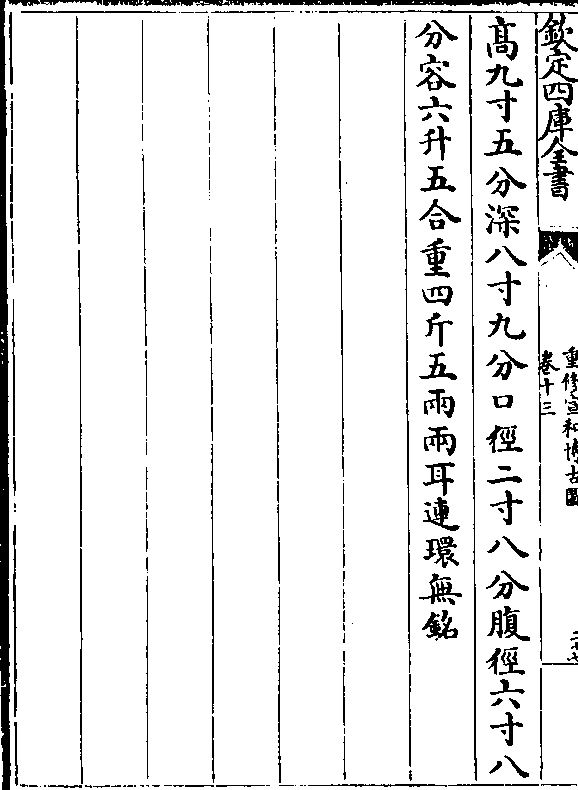 欽定四庫全書
重修宣和博古圖
卷十三
高九寸五分深八寸九分口徑二寸八分腹徑六寸八
分容六升五合重四斤五兩兩耳連環無銘